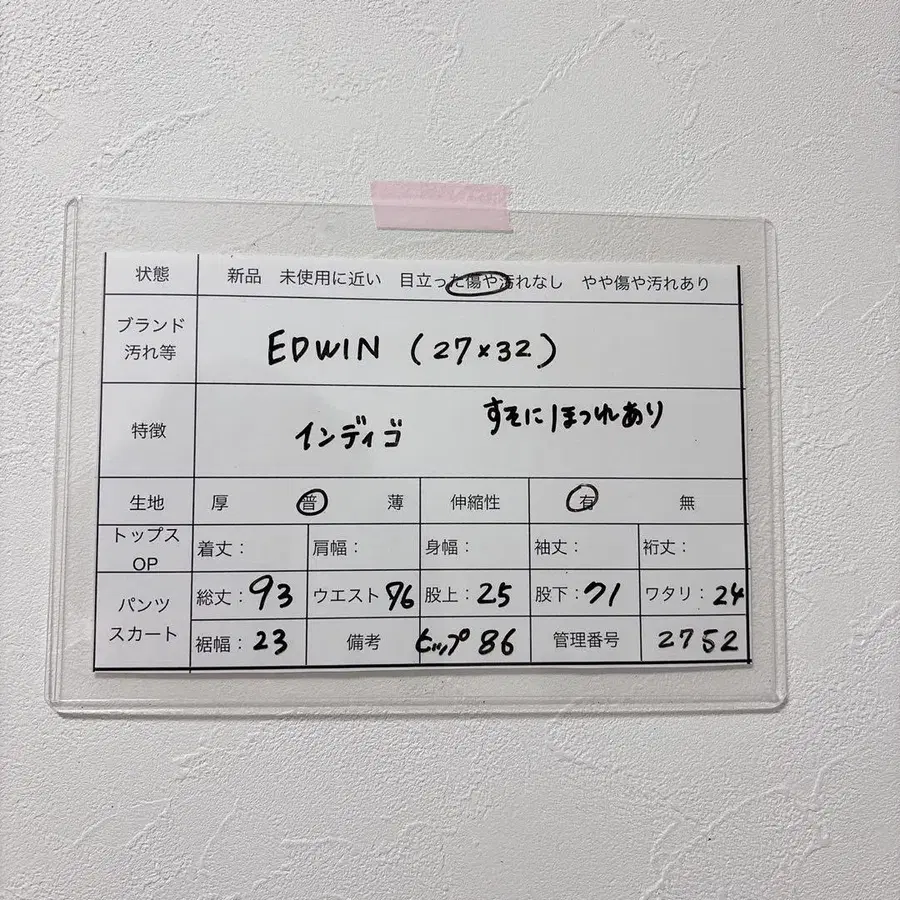 状態 新品 未使用に近い 目立った傷や汚れなし やや傷や汚れあり
ブランド
汚れ等
EDWIN (27×32)
特徴 インディゴ すそにほつれあり
生地 厚 普 薄 伸縮性 有 無
トップス
OP
着丈： 肩幅： 身幅： 袖丈： 裄丈：
パンツ
スカート
総丈：93 ウエスト 76 股上：25 股下：71 ワタリ：24
裾幅：23 備考 ヒップ 86 管理番号 2752